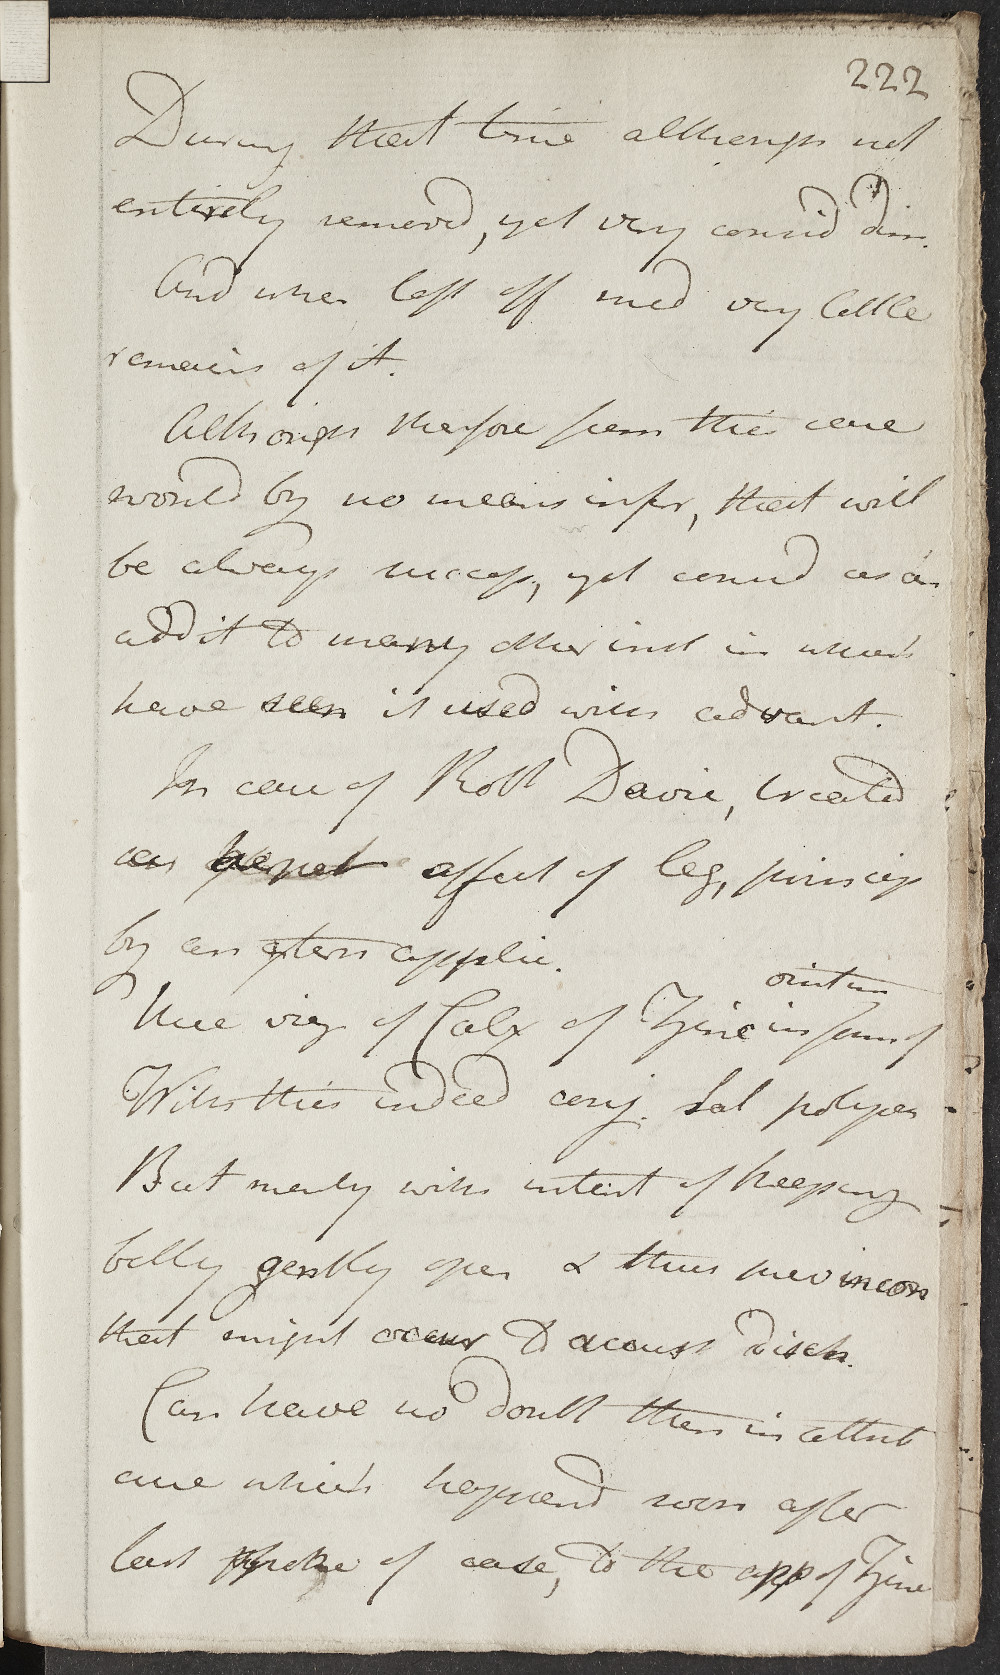 222
During that time although not
entirely removed, yet very consid dim.
And when left off med very little
remains of it.
Although therefore from this case
would by no means infer, that will
be always success, yet consid as an
addit to many other inst in which
have seen it used with advant.
In case of Robt Davie, treated
an affect of leg, princip
by an extern applic.
Here viz of Calx of Zinc in form of
ointm
With this indeed conj. Sal polych
But merely with intent of keeping
belly gently open & thus prev incon
that might occur to accust disch.
Can have no doubt then in attrib
cure which happend soon after
last spoke of case, to the app of Zinc